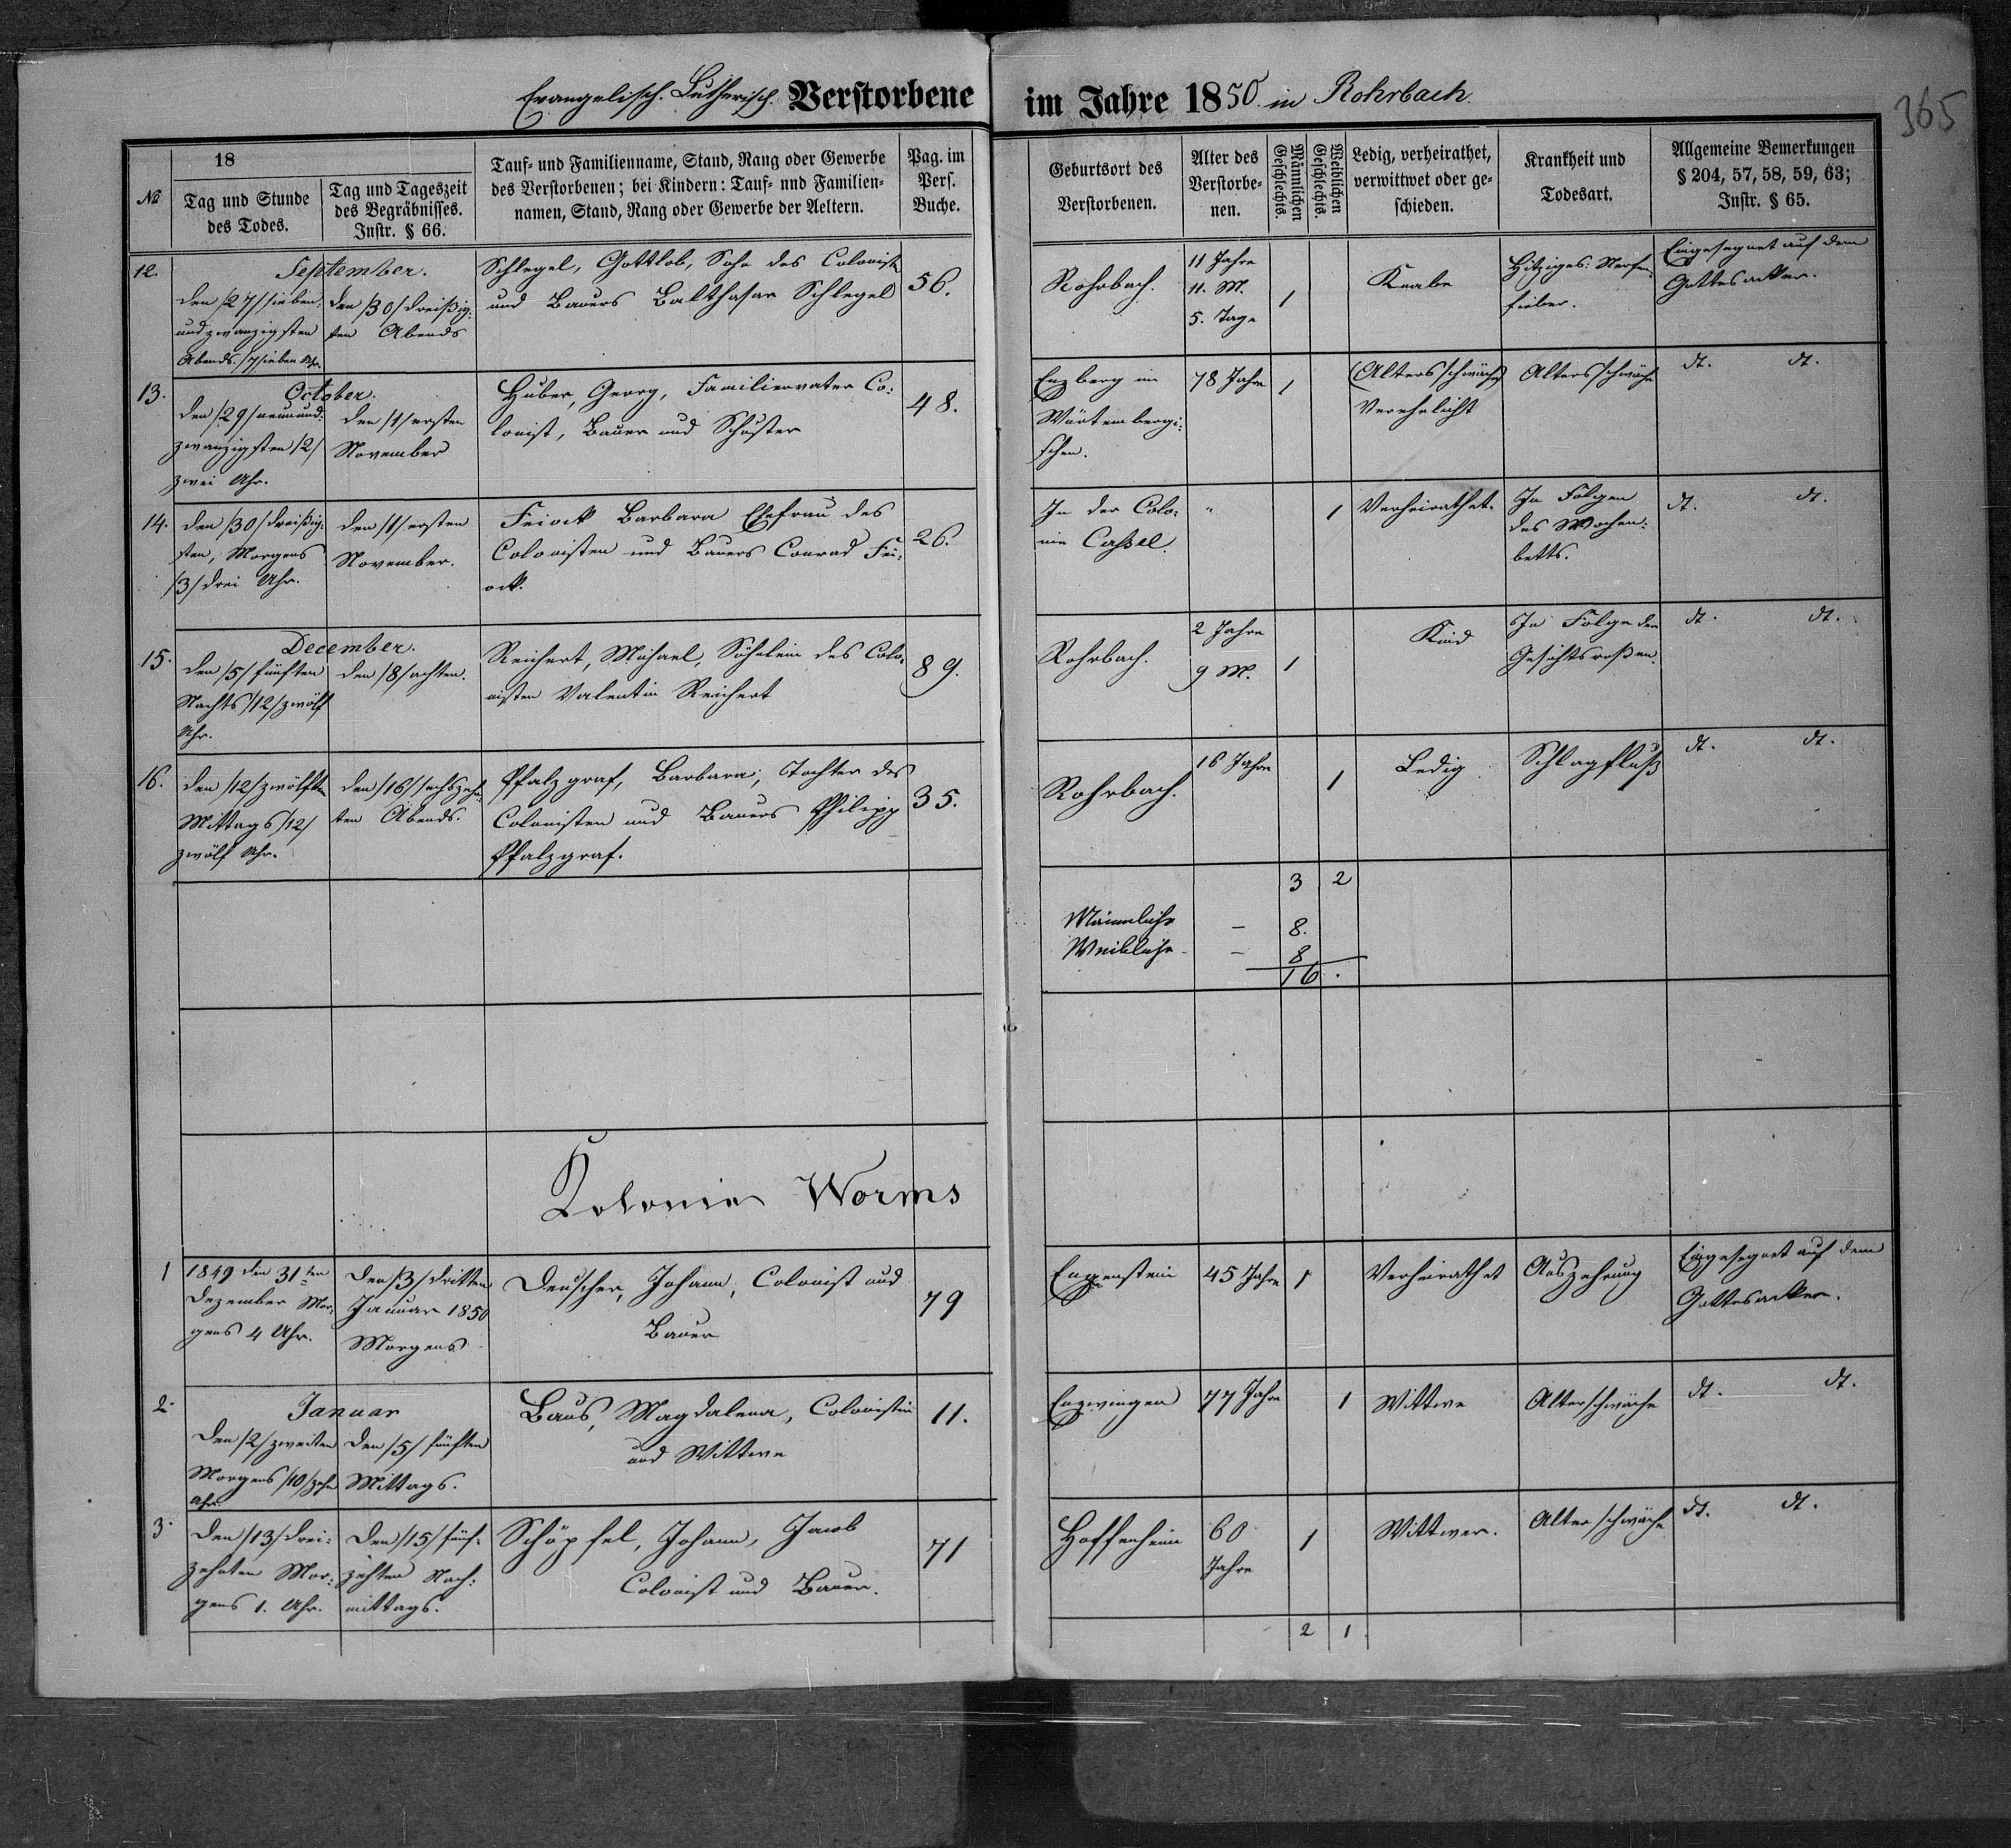 Evangelisch. Lutherisch. Verstorbene im Jahre 1850 in Rohrbach.
365
№
18
Tag und Stunde
des Todes.
Tag und Tageszeit
des Begräbnisses.
Instr. § 66.
Tauf- und Familienname, Stand, Rang oder Gewerbe
des Verstorbenen; bei Kindern: Tauf- und Familien-
namen, Stand, Rang oder Gewerbe der Aeltern.
Pag. im
Pers.
Buche.
Geburtsort des
Verstorbenen.
Alter des
Verstorbe-
nen.
Männlichen
Geschlechts.
Weiblichen
Geschlechts.
Ledig, verheirathet,
verwittwet oder ge-
schieden.
Krankheit und
Todesart.
Allgemeine Bemerkungen
§ 204, 57, 58, 59, 63;
Instr. § 65.
12.
September.
den /27/ sieben:
und zwanzigsten
Abends. /7/ sieben Uhr.
den /30/ dreißig:
sten Abends
Schlegel, Gottlob, Sohn des Colonist
und Bauers Balthasar Schlegel
56.
Rohrbach.
11 Jahre
11. M.
5. Tage
1
Knabe
Hitziges Nerfen
fieber.
Eingesegnet auf dem
Gottesacker.
13.
October.
den /29/ neunund:
zwanzigsten /2/
zwei Uhr.
den /1/ ersten
November
Huber, Georg, Familienvater Co:
lonist, Bauer und Schuster
48.
Enzberg im
Würtembergi:
schen.
78 Jahre
1
(Altersschwäche)
Verehelicht
Altersschwäche
dt. dt.
14.
den /30/ dreißig:
sten, Morgens
/3/ drei Uhr.
den /1/ ersten
November.
Feiock Barbara Ehefrau des
Colonisten und Bauers Conrad Fei:
ock.
26.
In der Colo:
nie Cassel.
"
1
Verheirathet.
In Folgen
des Wochen:
betts.
dt. dt.
15.
December.
den /5/ fünften
Nachts /12/ zwölf
Uhr.
den /8/ achten.
Reichert, Michael, Söhnlein des Colo:
nisten Valentin Reichert
89.
Rohrbach.
2 Jahre
9 M.
1
Kind
In Folge der
Gesichtsrosen.
dt. dt.
16.
den /12/ zwölften
Mittags /12/
zwölf Uhr.
den /16/ sechszehn
ten Abends.
Pfalzgraf, Barbara, Tochter des
Colonisten und Bauers Philipp
Pfalzgraf.
35.
Rohrbach.
16 Jahre
1
Ledig
Schlagfluß
dt. dt.
3 2
Männliche - 8.
Weibliche - 8
16.
Kolonie Worms
1
1849 den 31ten
Dezember Mor:
gens 4 Uhr.
Den /3/ dritten
Januar 1850
Morgens
Deuscher, Johann, Colonist und
Bauer
79
Eggenstein
45 Jahre
1
Verheirathet
Auszehrung
Eingesegnet auf dem
Gottesacker.
2.
Januar
Den /2/ zweiten
Morgens /10/ zehn
Uhr.
Den /5/ fünften
Mittags.
Baus, Magdalena, Colonistin
und Wittwe
11.
Enzwingen
77 Jahre
1
Wittwe
Alterschwäche
dt. dt.
3.
Den /13/ drei:
zehnten Mor:
gens 1. Uhr.
Den /15/ fünf:
zehten Nach:
mittags.
Schöpfel, Johann, Jacob
Colonist und Bauer.
71
Hoffenheim
60
Jahre
1
Wittwer.
Alterschwäche
dt. dt.
2 1